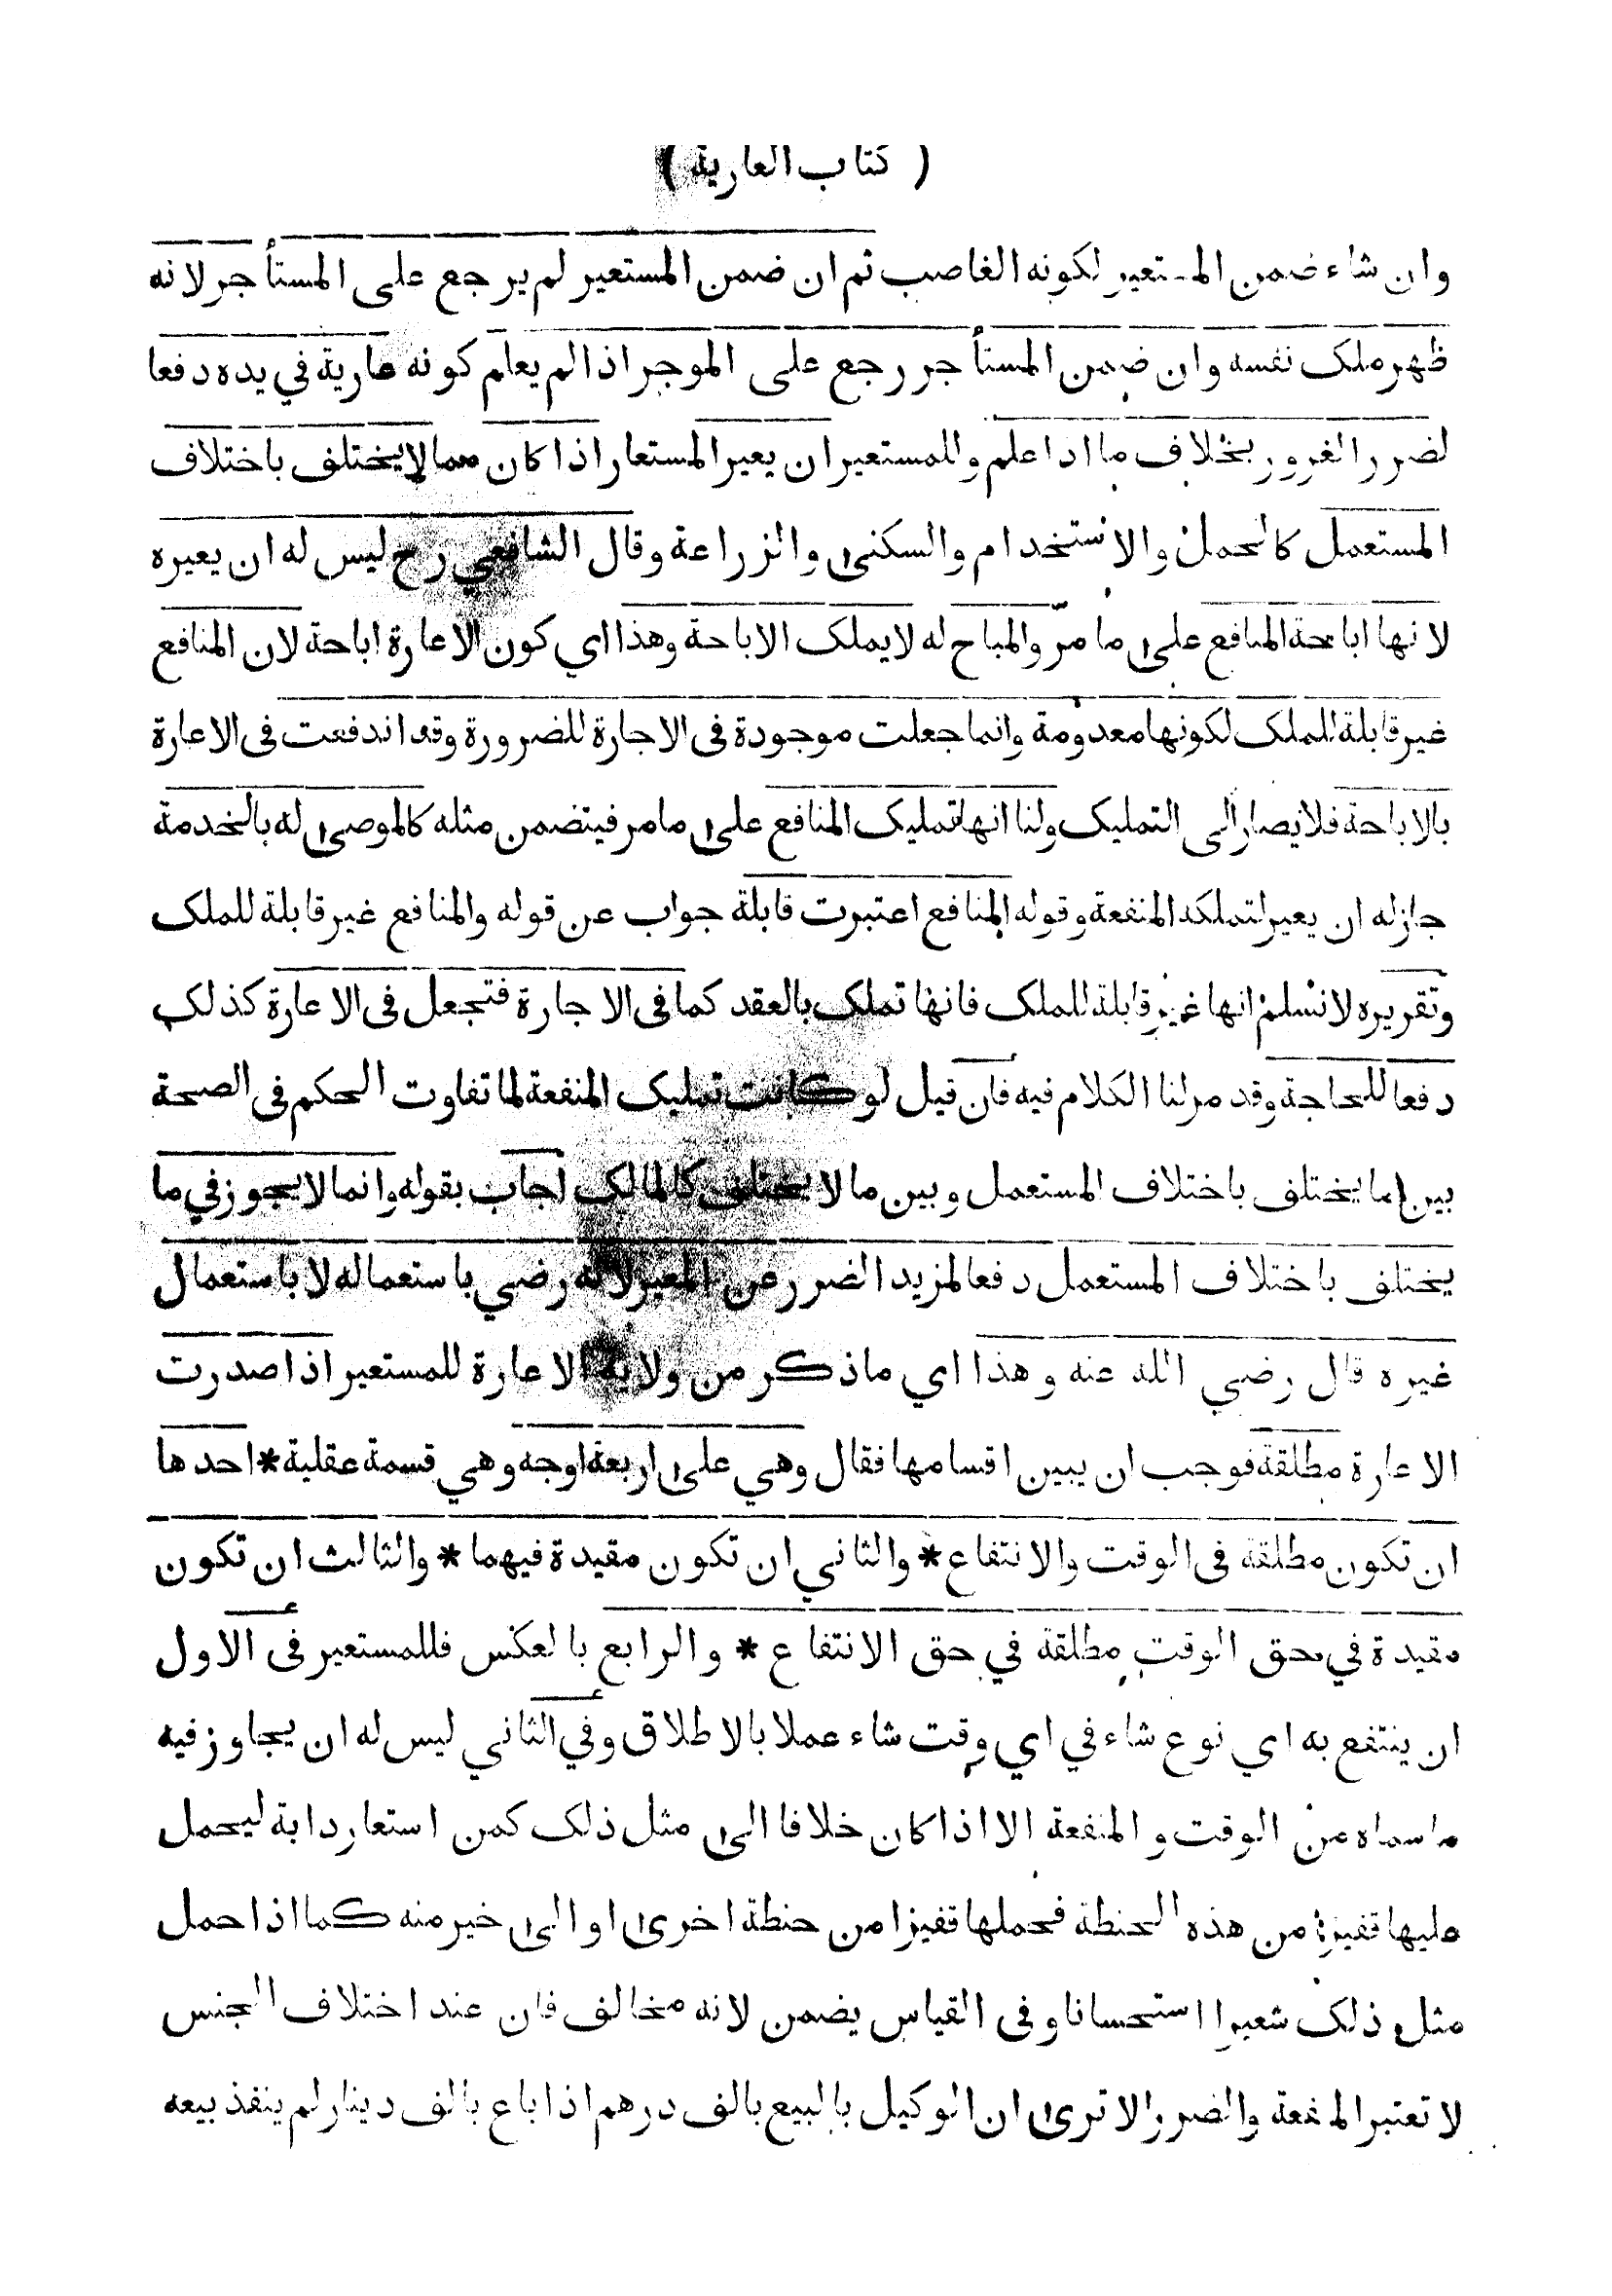 ( كتاب العارية )
وان شاء ضمن المستعير لكونه الغاصب ثم ان ضمن المستعير لم يرجع على المستأجر لانه
ظهر ملك نفسه وان ضمن المستأجر رجع على الموجر اذا لم يعلم كونه عارية في يده دفعا
لضرر الغرور بخلاف ما اذا علم وللمستعير ان يعير المستعار اذا كان مما لا يختلف باختلاف
المستعمل كالحمل والاستخدام والسكنى والزراعة وقال الشافعي رح ليس له ان يعيره
لانها اباحة المنافع على ما مرّ والمباح له لا يملك الاباحة وهذا اي كون الاعارة اباحة لان المنافع
غير قابلة للملك لكونها معدومة وانما جعلت موجودة فى الاجارة للضرورة وقد اندفعت فى الاعارة
بالاباحة فلا يصار الى التمليك ولنا انها تمليك المنافع على ما مر فيتضمن مثله كالموصى له بالخدمة
جاز له ان يعير لتملكه المنفعة وقوله المنافع اعتبرت قابلة جواب عن قوله والمنافع غير قابلة للملك
وتقريره لا نسلم انها غير قابلة للملك فانها تملك بالعقد كما فى الاجارة فتجعل فى الاعارة كذلك
دفعا للحاجة وقد مر لنا الكلام فيه فان قيل لو كانت تمليك المنفعة لما تفاوت الحكم فى الصحة
بين ما يختلف باختلاف المستعمل وبين ما لا يختلف كالمالك اجاب بقوله وانما لا يجوز في ما
يختلف باختلاف المستعمل دفعا لمزيد الضرر عن المعير لانه رضي باستعماله لا باستعمال
غيره قال رضي الله عنه وهذا اي ما ذكر من ولاية الاعارة للمستعير اذا صدرت
الاعارة مطلقة فوجب ان يبين اقسامها فقال وهي على اربعة اوجه وهي قسمة عقلية * احدها
ان تكون مطلقة فى الوقت والانتفاع * والثاني ان تكون مقيدة فيهما * والثالث ان تكون
مقيدة في حق الوقت مطلقة في حق الانتفاع * والرابع بالعكس فللمستعير فى الاول
ان ينتفع به اي نوع شاء في اي وقت شاء عملا بالاطلاق وفي الثاني ليس له ان يجاوز فيه
ما سماه من الوقت والمنفعة الا اذا كان خلافا الى مثل ذلك كمن استعار دابة ليحمل
عليها قفيزا من هذه الحنطة فحملها قفيزا من حنطة اخرى او الى خير منه كما اذا حمل
مثل ذلك شعيرا استحسانا وفى القياس يضمن لانه مخالف فان عند اختلاف الجنس
لا تعتبر المنفعة والضرر الا ترى ان الوكيل بالبيع بالف درهم اذا باع بالف دينار لم ينفذ بيعه